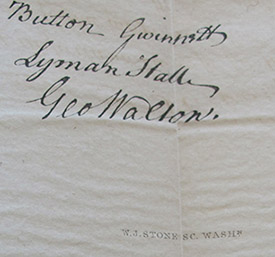 Button Gwinnett
Lyman Hall
Geo Walton.
W. J. STONE SC. WASHN